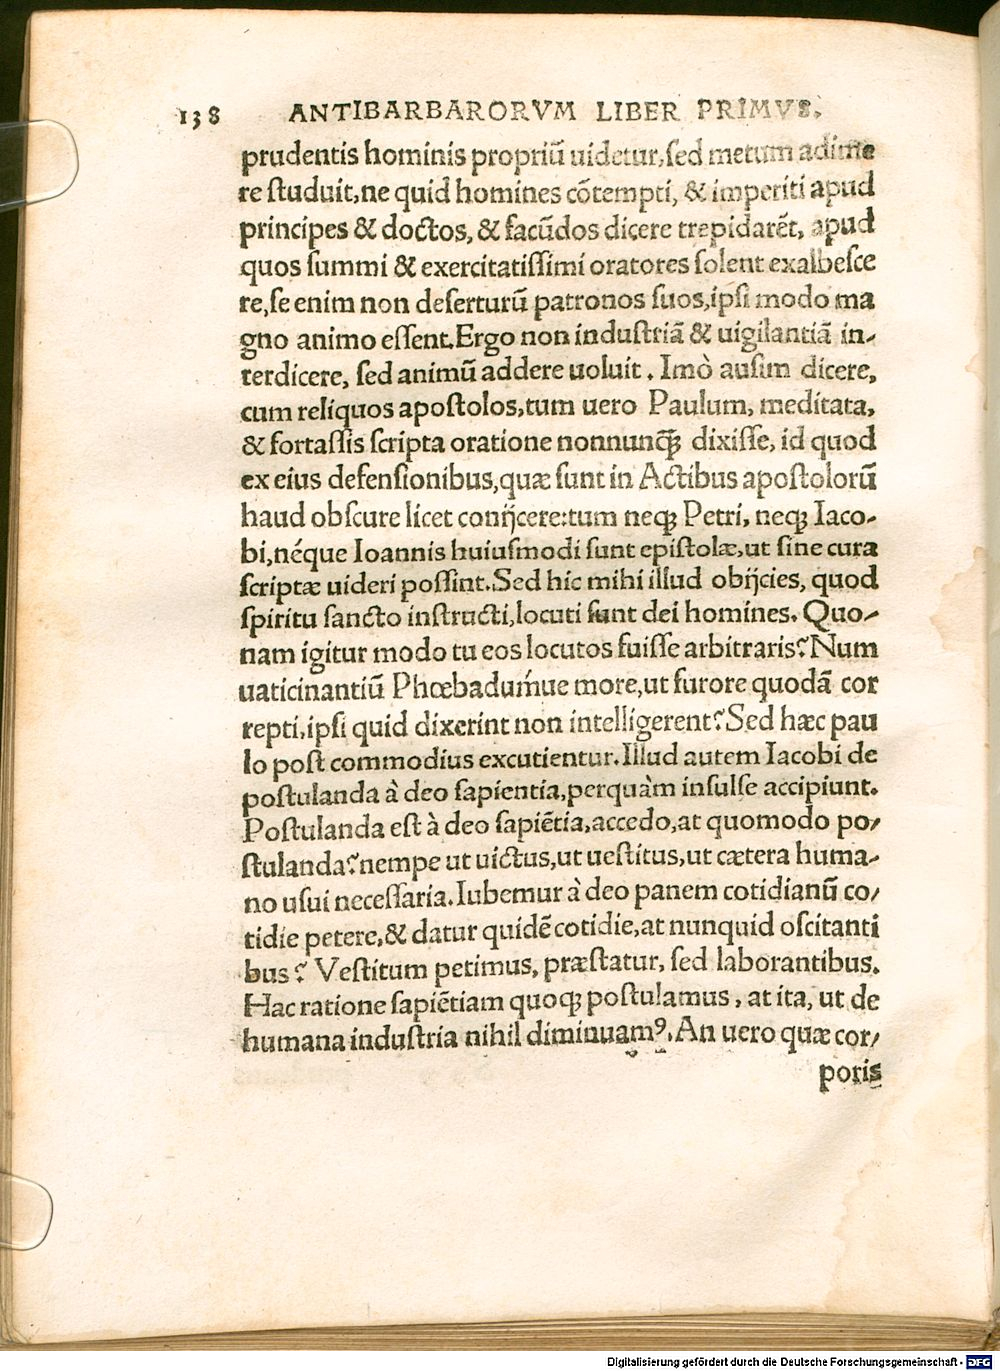 138 ANTIBARBARORVM LIBER PRIMVS.
prudentis hominis propriū uidetur, sed metum adime
re studuit, ne quid homines cōtempti, & imperiti apud
principes & doctos, & facūdos dicere trepidarēt, apud
quos summi & exercitatissimi oratores solent exalbesce
re, se enim non deserturū patronos suos, ipsi modo ma
gno animo essent. Ergo non industriā & uigilantiā in-
terdicere, sed animū addere uoluit. Imò ausim dicere,
cum reliquos apostolos, tum uero Paulum, meditata,
& fortassis scripta oratione nonnunq̃ dixisse, id quod
ex eius defensionibus, quæ sunt in Actibus apostolorū
haud obscure licet conijcere: tum neq; Petri, neq; Iaco-
bi, néque Ioannis huiusmodi sunt epistolæ, ut sine cura
scriptæ uideri possint. Sed hic mihi illud obijcies, quod
spiritu sancto instructi, locuti sunt dei homines. Quo-
nam igitur modo tu eos locutos fuisse arbitraris? Num
uaticinantiū Phœbaduḿue more, ut furore quodā cor
repti, ipsi quid dixerint non intelligerent? Sed hæc pau
lo post commodius excutientur. Illud autem Iacobi de
postulanda à deo sapientia, perquàm insulse accipiunt.
Postulanda est à deo sapiētia, accedo, at quomodo po/
stulanda? nempe ut uictus, ut uestitus, ut cætera huma-
no usui necessaria. Iubemur à deo panem cotidianū co/
tidie petere, & datur quidē cotidie, at nunquid oscitanti
bus? Vestitum petimus, præstatur, sed laborantibus.
Hac ratione sapiētiam quoq; postulamus, at ita, ut de
humana industria nihil diminuamꝰ. An uero quæ cor/
poris
Digitalisierung gefördert durch die Deutsche Forschungsgemeinschaft - DFG